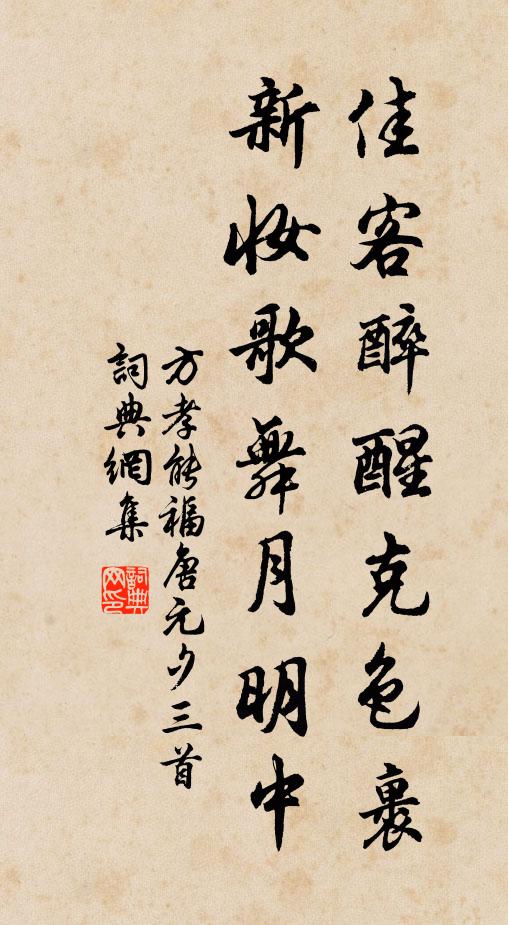 佳客醉醒克色裏
新妆歌舞月明中
方孝能福唐元夕三首
詞典網集
詞典网印